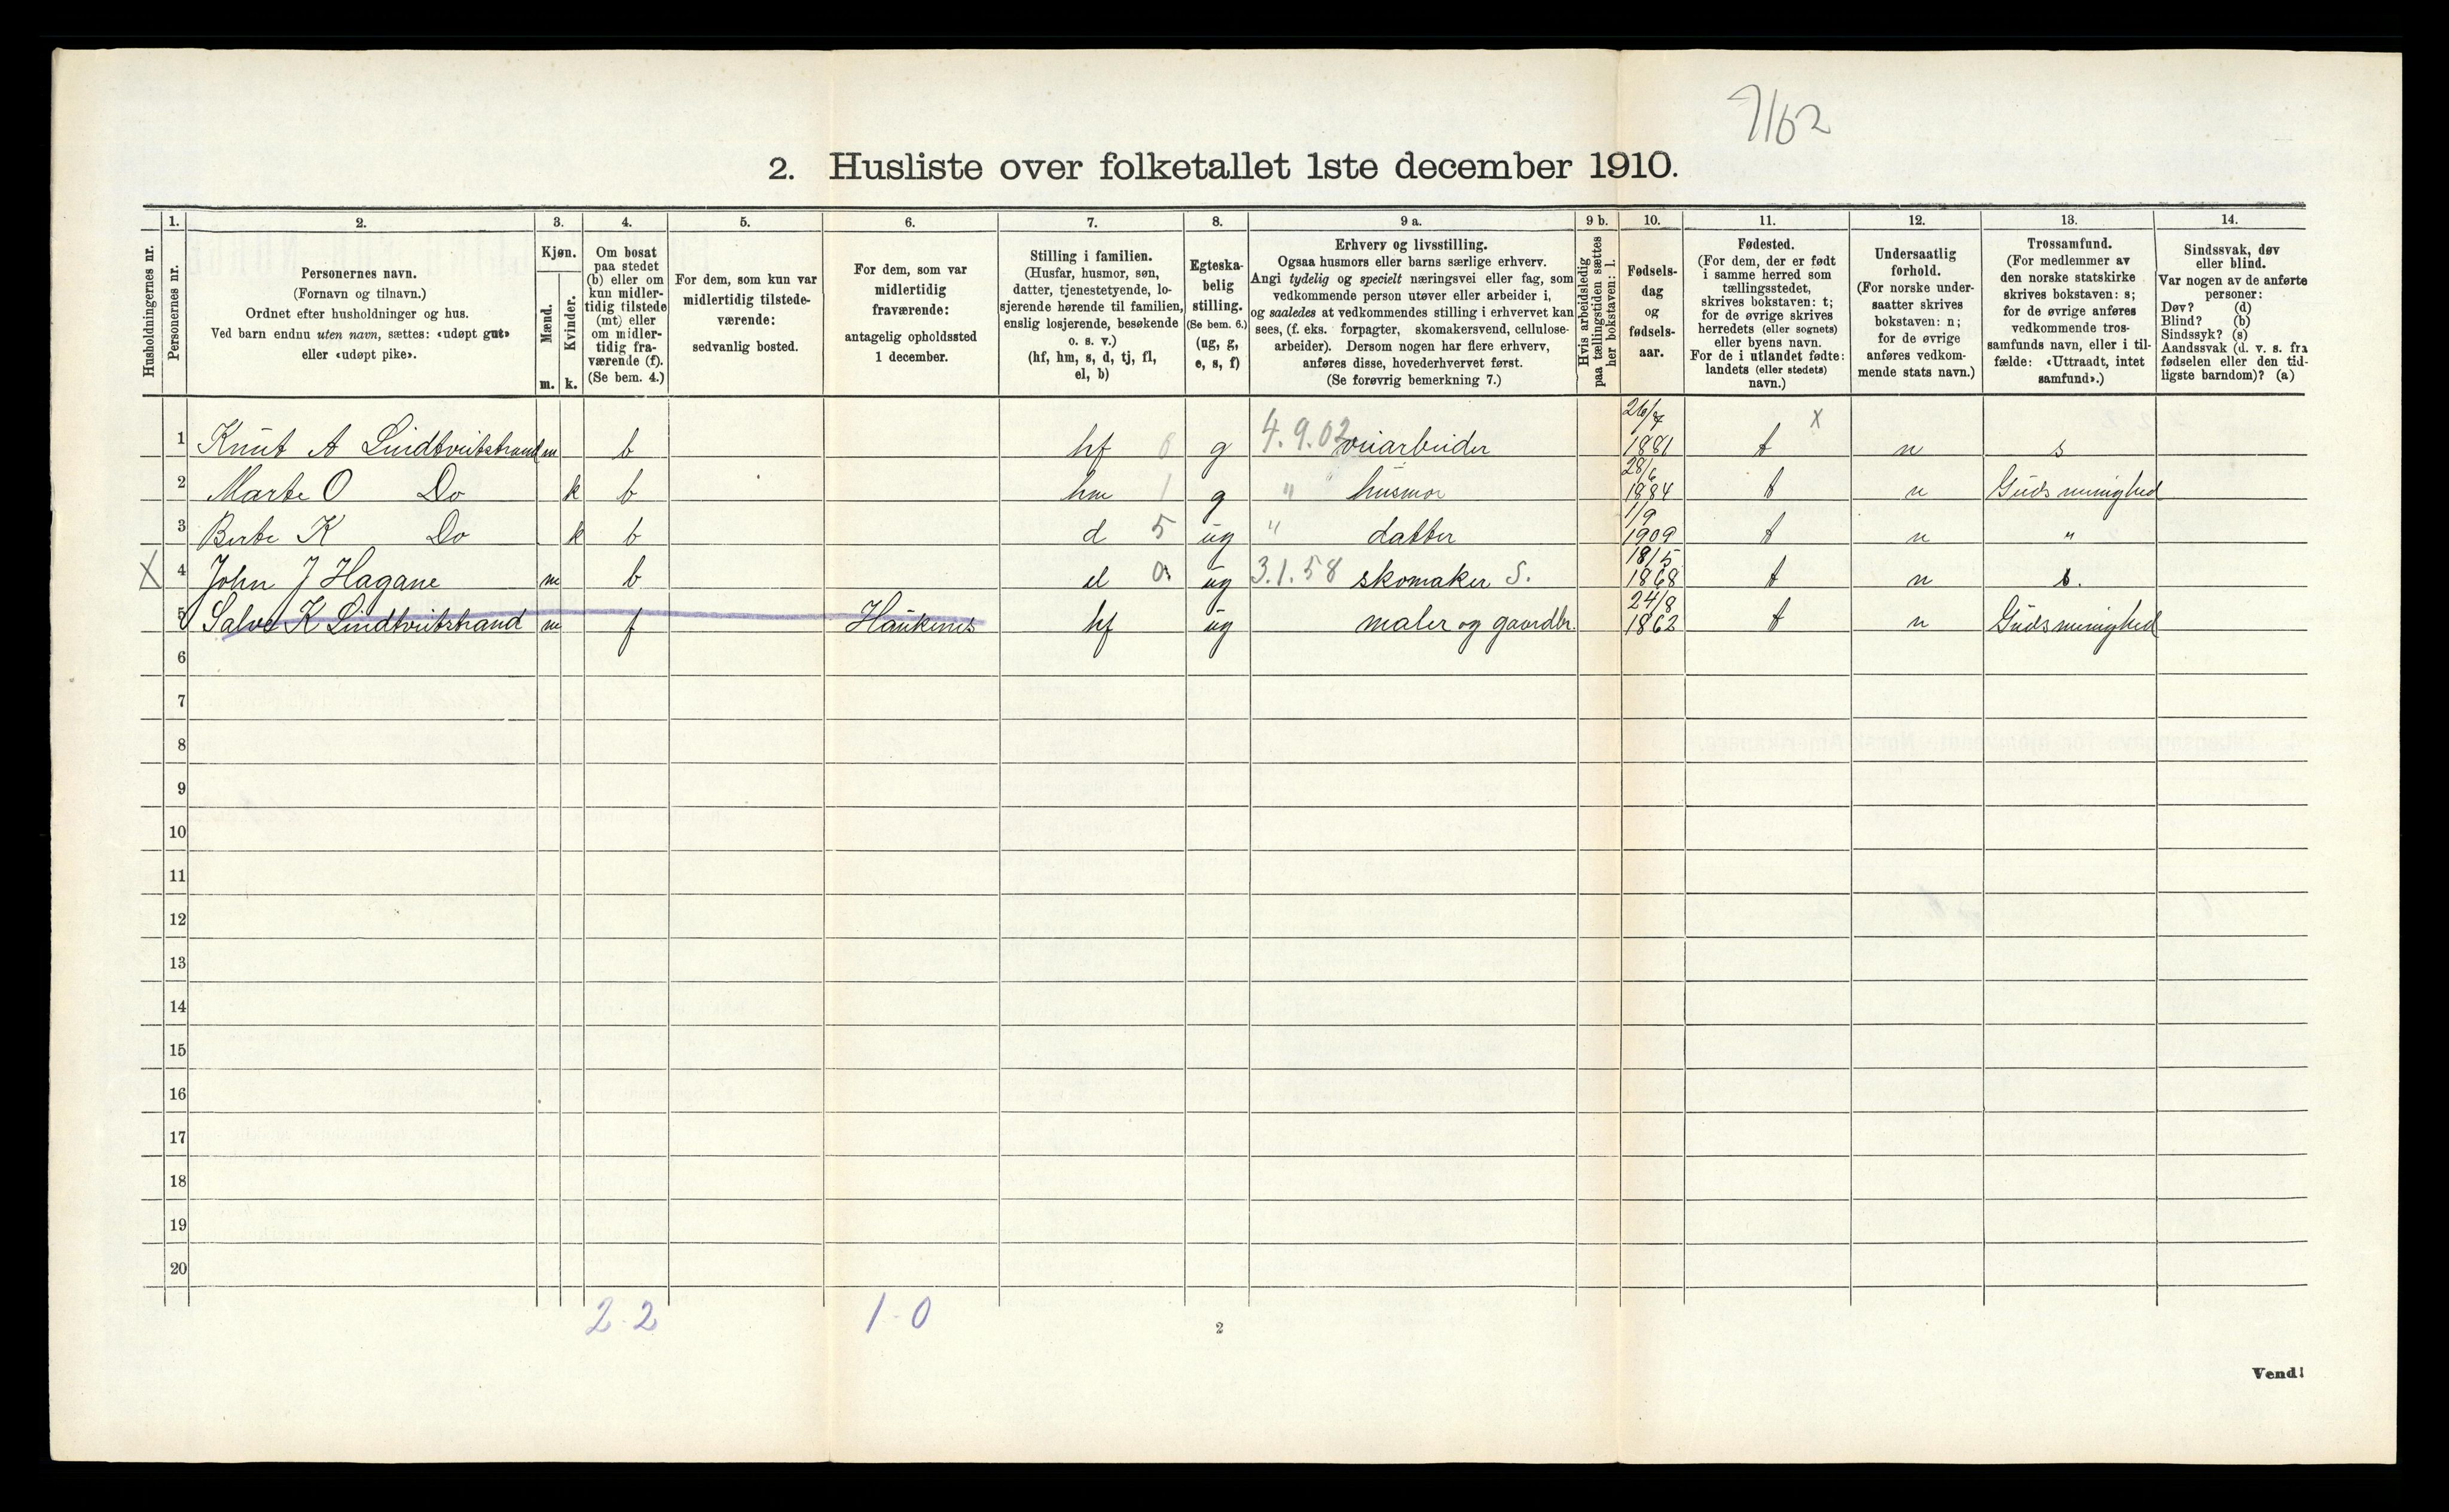 7/62
2. Husliste over folketallet 1ste december 1910.
Husholdningernes nr.
1.
Personernes nr.
2.
Personernes navn.
(Fornavn og tilnavn.)
Ordnet efter husholdninger og hus.
Ved barn endnu uten navn, sættes: «udøpt gut»
eller «udøpt pike».
3.
Kjøn.
Mænd.
m.
Kvinder.
k.
4.
Om bosat
paa stedet
(b) eller om
kun midler-
tidig tilstede
(mt) eller
om midler-
tidig fra-
værende (f).
(Se bem. 4.)
5.
For dem, som kun var
midlertidig tilstede-
værende:
sedvanlig bosted.
6.
For dem, som var
midlertidig
fraværende:
antagelig opholdssted
1 december.
7.
Stilling i familien.
(Husfar, husmor, søn,
datter, tjenestetyende, lo-
sjerende hørende til familien,
enslig losjerende, besøkende
o. s. v.)
(hf, hm, s, d, tj, fl,
el, b)
8.
Egteska-
belig
stilling.
(Se bem. 6.)
(ug, g,
e, s, f)
9 a.
Erhverv og livsstilling.
Ogsaa husmors eller barns særlige erhverv.
Angi tydelig og specielt næringsvei eller fag, som
vedkommende person utøver eller arbeider i,
og saaledes at vedkommendes stilling i erhvervet kan
sees, (f. eks. forpagter, skomakersvend, cellulose-
arbeider). Dersom nogen har flere erhverv,
anføres disse, hovederhvervet først.
(Se forøvrig bemerkning 7.)
9 b.
Hvis arbeidsledig
paa tællingstiden sættes
her bokstaven: l.
10.
Fødsels-
dag
og
fødsels-
aar.
11.
Fødested.
(For dem, der er født
i samme herred som
tællingsstedet,
skrives bokstaven: t;
for de øvrige skrives
herredets (eller sognets)
eller byens navn.
For de i utlandet fødte:
landets (eller stedets)
navn.)
12.
Undersaatlig
forhold.
(For norske under-
saatter skrives
bokstaven: n;
for de øvrige
anføres vedkom-
mende stats navn.)
13.
Trossamfund.
(For medlemmer av
den norske statskirke
skrives bokstaven: s;
for de øvrige anføres
vedkommende tros-
samfunds navn, eller i til-
fælde: «Uttraadt, intet
samfund».)
14.
Sindssvak, døv
eller blind.
Var nogen av de anførte
personer:
Døv? (d)
Blind? (b)
Sindssyk? (s)
Aandssvak (d. v. s. fra
fødselen eller den tid-
ligste barndom)? (a)
1 Knut A Lindtveitstrand m b hf 0 g 4.9.02 veiarbeider 26/7 1881 t X n s
2 Marte O Do k b hm 1 g " husmor 28/6 1884 t n Guds menighed
3 Berte K Do k b d 5 ug " datter 1/9 1909 t n "
X 4 John J Hagane m b el 0 ug 3.1.58 skomaker S. 18/5 1868 t n s.
5 Salve K Lindtveitstrand m f Haukenes hf ug maler og gaardbr. 24/8 1862 t n Guds menighed
6
7
8
9
10
11
12
13
14
15
16
17
18
19
20
2-2 1-0
2
Vend!